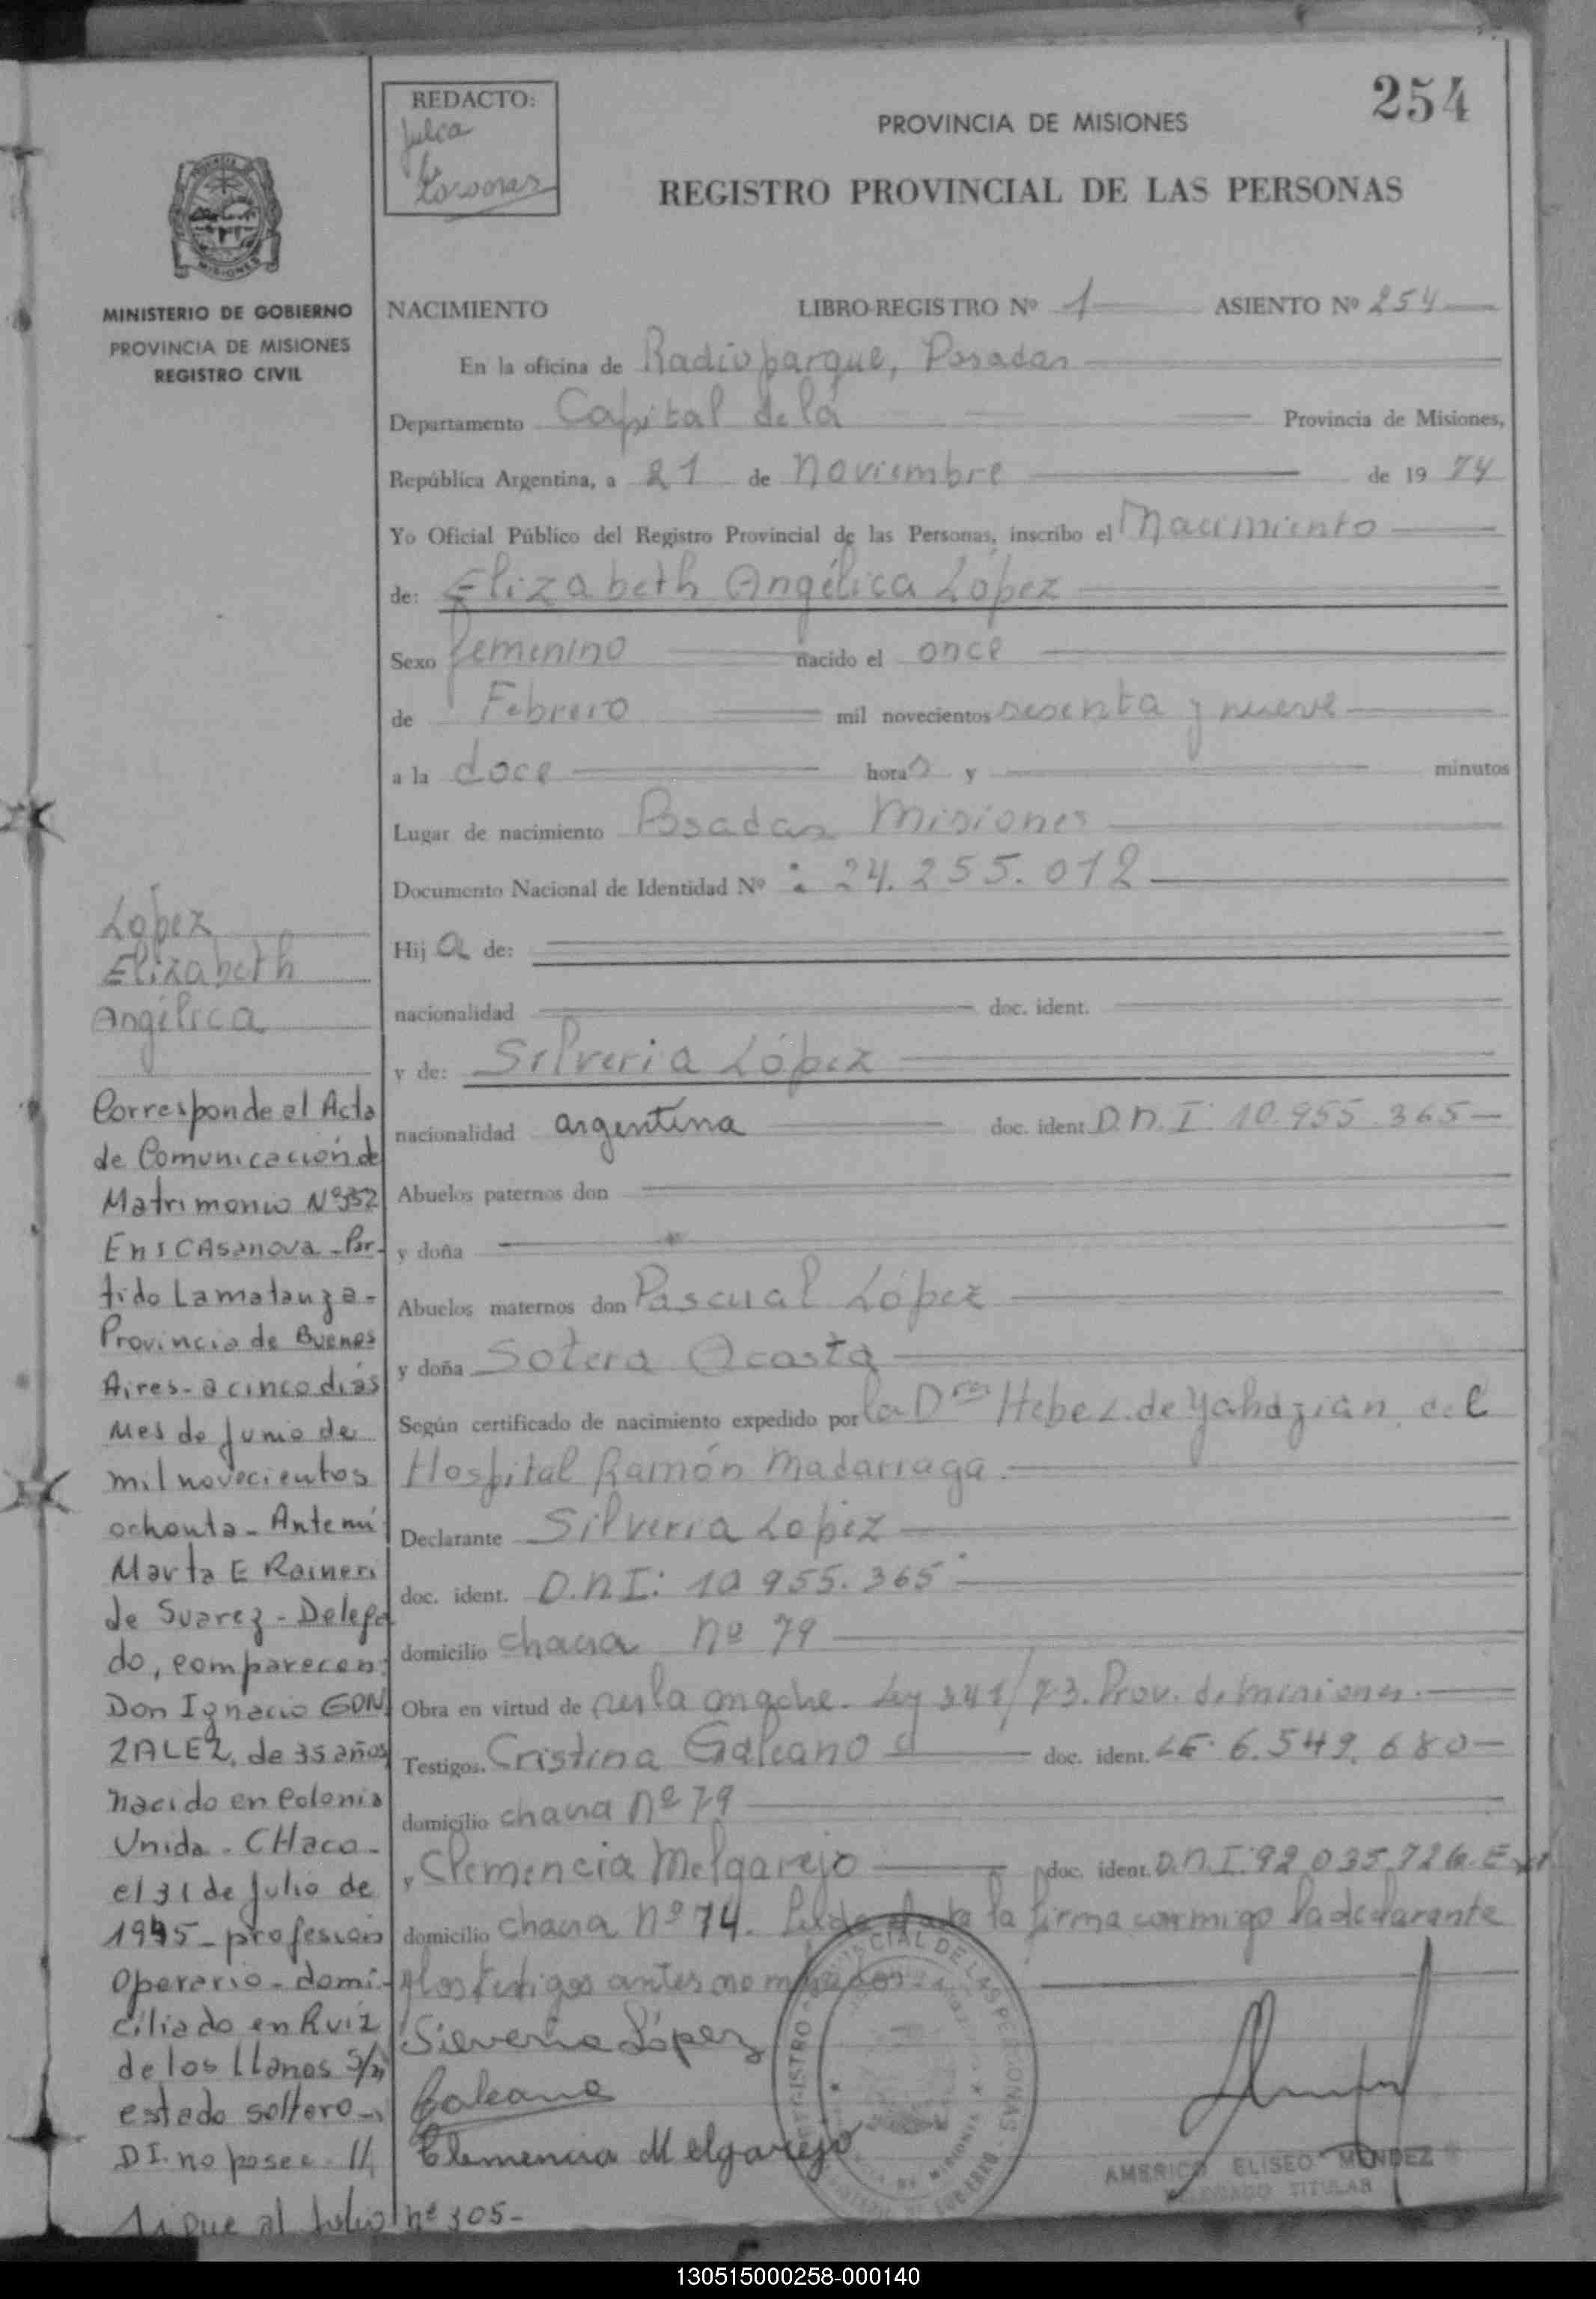 254
REDACTO:
Julia
PROVINCIA DE MISIONES
REGISTRO PROVINCIAL DE LAS PERSONAS
MISIONES
MINISTERIO DE GOBIERNO
PROVINCIA DE MISIONES
REGISTRO CIVIL
NACIMIENTO LIBRO-REGISTRO Nº 1 ASIENTO Nº 254
En la oficina de Radioparque, Posadas
Departamento Capital de la Provincia de Misiones,
República Argentina, a 21 de noviembre de 19 74
Yo Oficial Público del Registro Provincial de las Personas, inscribo el Nacimiento
de: Elizabeth Angélica López
Sexo femenino nacido el once
de Febrero mil novecientos sesenta y nueve
a la doce horas y minutos
Lugar de nacimiento Posadas Misiones
Documento Nacional de Identidad Nº : 24.255.012
Hija de:
nacionalidad doc. ident.
y de: Silveria López
nacionalidad argentina doc. ident D.N.I: 10.955.365
Abuelos paternos don
y doña
Abuelos maternos don Pascual López
y doña Sotera Acosta
Según certificado de nacimiento expedido por la Dra Hebe L. de Yahazian, del
Hospital Ramón Madariaga.
Declarante Silveria Lopez
doc. ident. D.N.I: 10 955.365
domicilio chacra Nº 79
Obra en virtud de ser la madre. Ley 341/73. Prov. de Misiones.
Testigos. Cristina Galeano doc. ident. LE. 6.549.680
domicilio chacra Nº 79
y Clemencia Melgarejo doc. ident. D.N.I: 92 035 726. Ext
domicilio chacra nº 74. Leída el acta la firma conmigo la declarante
y los testigos antes nombrados
Silveria López
Galeano
Clemencia Melgarejo
AMERICO ELISEO MENDEZ
DELEGADO TITULAR
López
Elizabeth
Angélica
Corresponde al Acta
de Comunicación de
Matrimonio Nº 352
En I CAsanova - Par-
tido Lamatanza -
Provincia de Buenos
Aires - a cinco días
Mes de Junio de
mil novecientos
ochenta - Ante mí
Marta E Raineri
de Suarez - Delega
do, comparecen:
Don Ignacio GON
ZALEZ, de 35 años
nacido en Colonia
Unida - CHaco -
el 31 de Julio de
1945 - profesión
Operario - domi-
ciliado en Ruiz
de los Llanos S/n
estado soltero -
DI. no posee - //
Sigue al folio nº 305 -
130515000258-000140